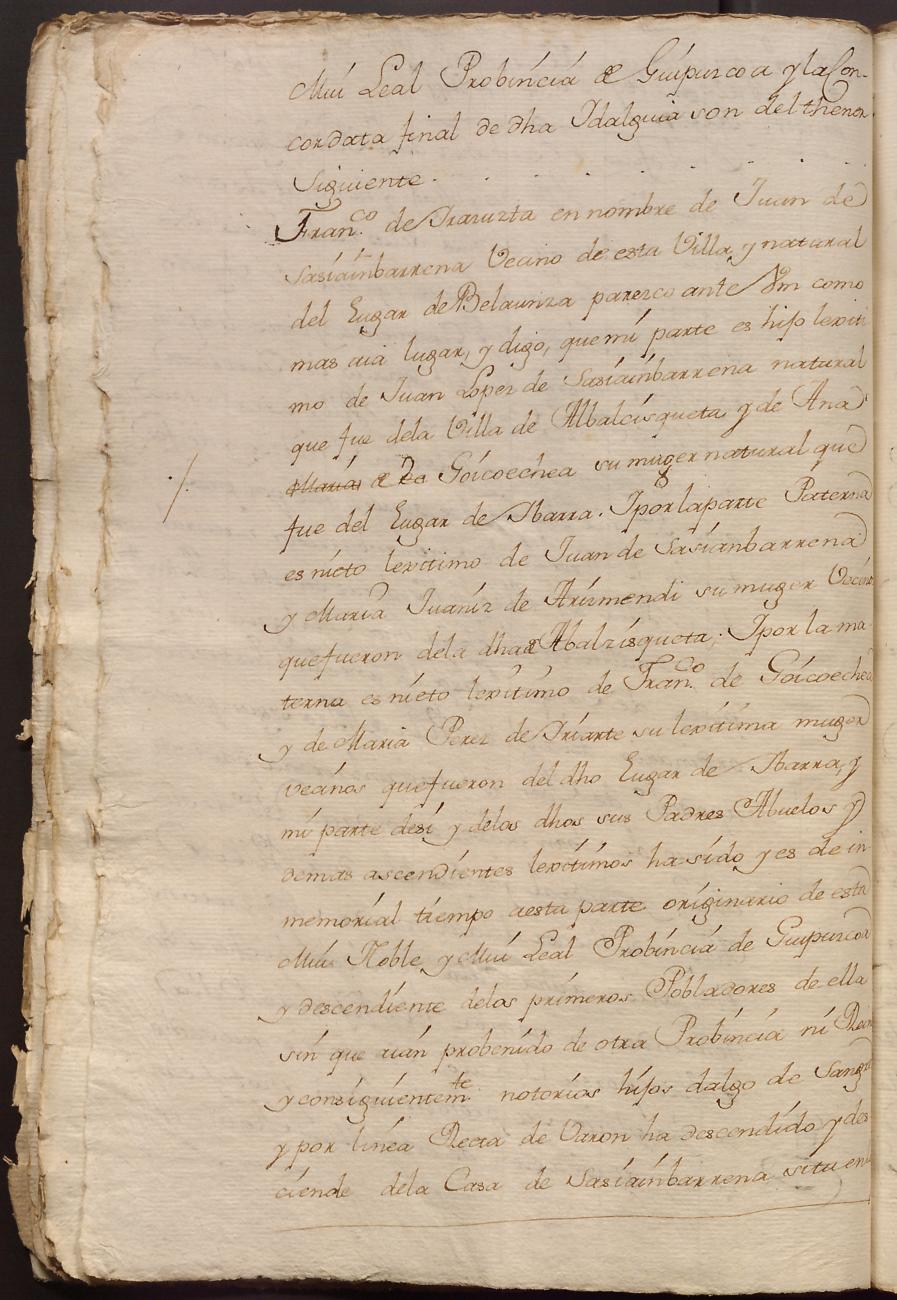 Mui Leal Probincia de Guipuzcoa y la Con-
cordata final de dha Idalguia son del thenor
Siguiente.
Fran.co de Irazuzta en nombre de Juan de
Sasiainbarrena Vecino de esta Villa, y natural
del Lugar de Belaunza parezco ante Vm como
mas aia lugar, y digo, que mi parte es hijo lexiti
mo de Juan Lopez de Sasiainbarrena natural
que fue dela Villa de Abalcisqueta y de Ana
Maria de Goicoechea su muger natural que
fue del Lugar de Ibarra. I por la parte Paterna
es nieto lexitimo de Juan de Sasianbarrena
y Maria Juaniz de Arismendi su muger Vecinos
que fueron dela dha Abalzisqueta; I por la ma-
terna es nieto lexitimo de Fran.co de Goicoechea
y de Maria Perez de Iriarte su lexitima muger
vecinos que fueron del dho Lugar de Ibarra, y
mi parte desi y delos dhos sus Padres Abuelos y
demas ascendientes lexitimos ha sido y es de in
memorial tiempo aesta parte originario de esta
Mui Noble y Mui Leal Probincia de Guipuzcoa
y descendiente delos primeros Pobladores de ella
sin que aian probenido de otra Probincia ni Rein
y consiguientemte notorios hijos dalgo de Sangre
y por linea Recta de Varon ha descendido y des
ciende dela Casa de Sasiainbarrena situ en